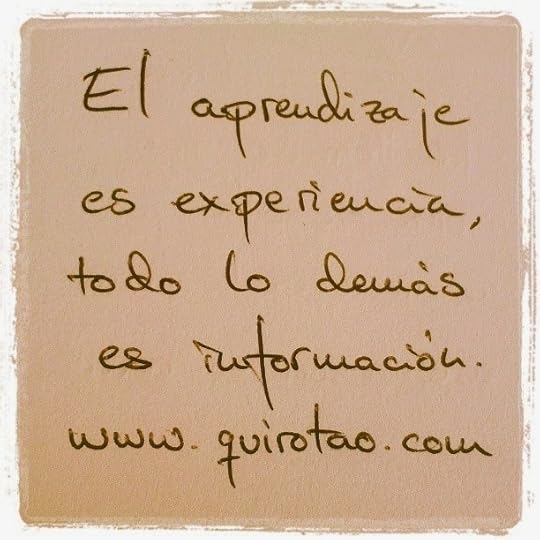 El aprendizaje
es experiencia,
todo lo demás
es información.
www.quirotao.com